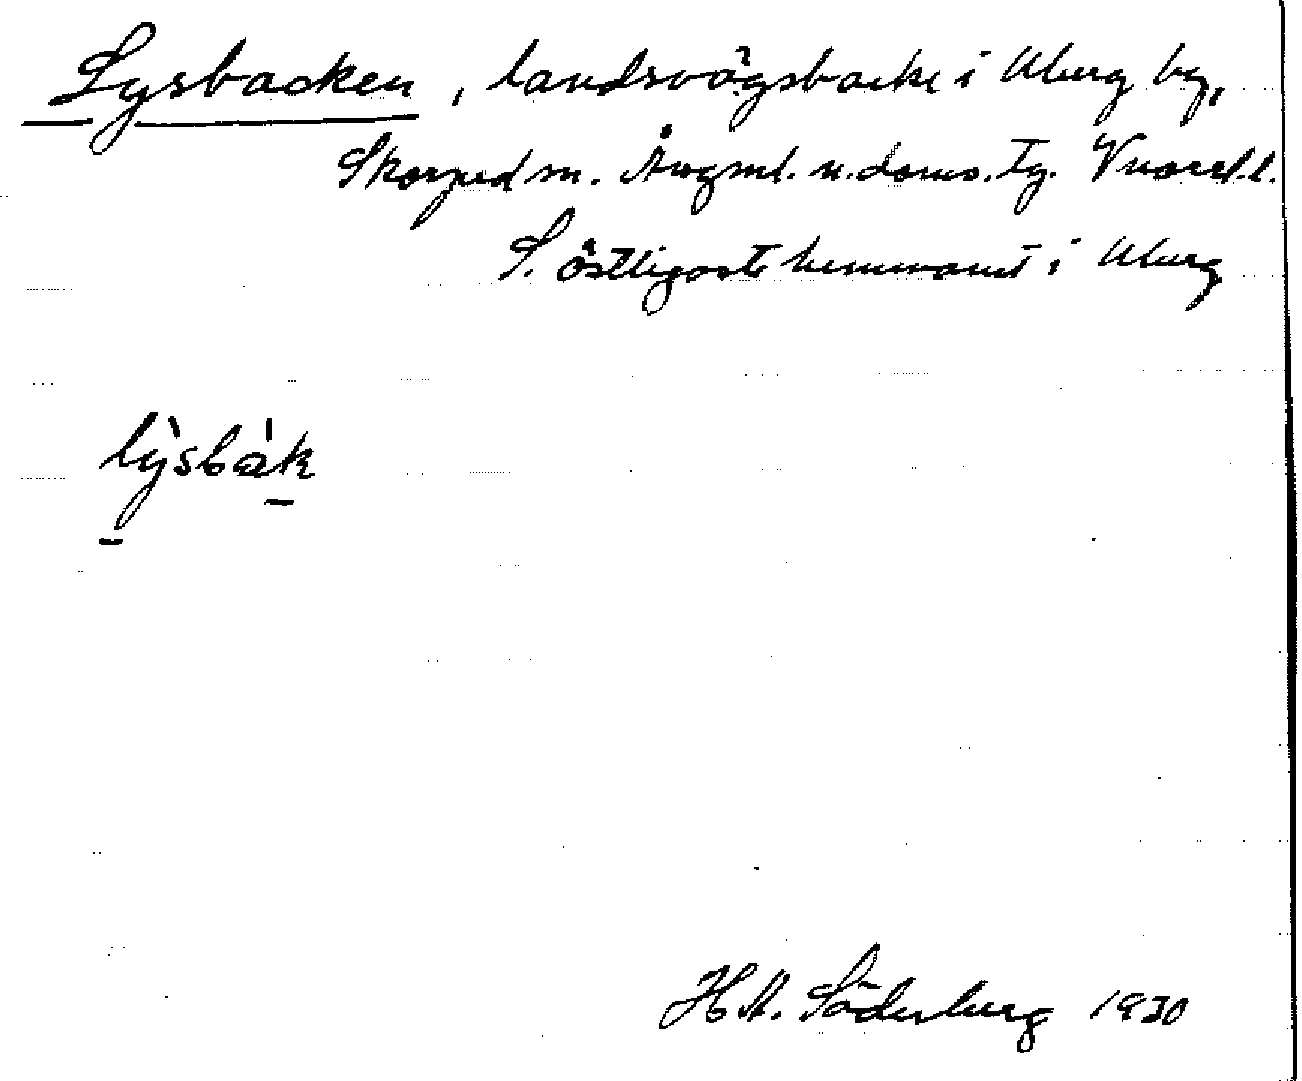 Lysbacken, landsvägsbacke i Uberg by,
Skorped sn. Ångml. n. doms. tg. Vnorrl. l.
S. östligaste hemmanet i Uberg
ly̍sba̍k
H A. Söderberg 1930